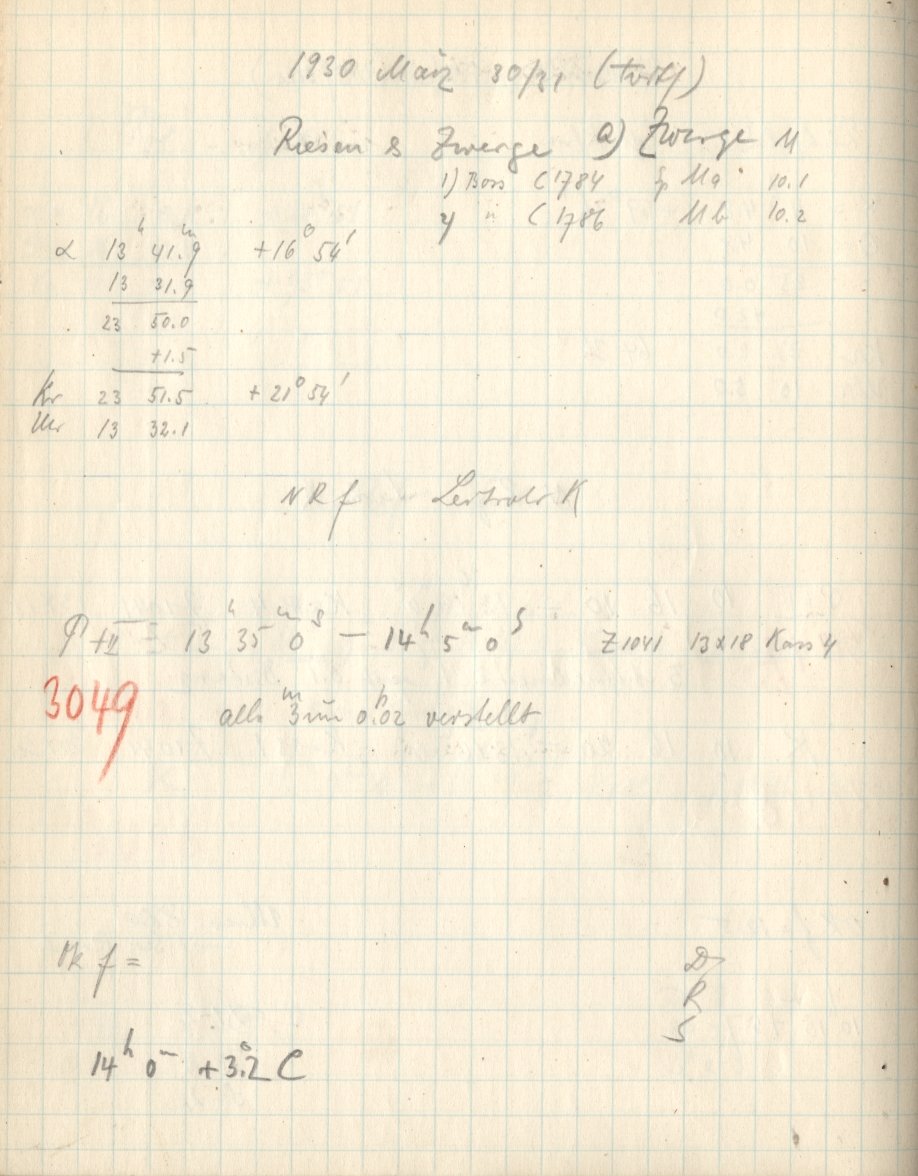 1930 März 30/31 (
Riesen & Zwerge a) Zwerge M
1) Boss C 1784 Sp Ma 10.1
2) " C 1786 Mb 10.2
α 13h 41.m9 +16° 54'
13 31.9
23 50.0
+1.5
Kr 23 51.5 +21° 54'
Uhr 13 32.1
NR f K
P+II = 13h 35m 0s — 14h 5m 0s Z 1041 13x18 Kass 4
3049
alle 3m um 0.p02 verstellt
f =
D
R
S
14h 0m +3.°2 C